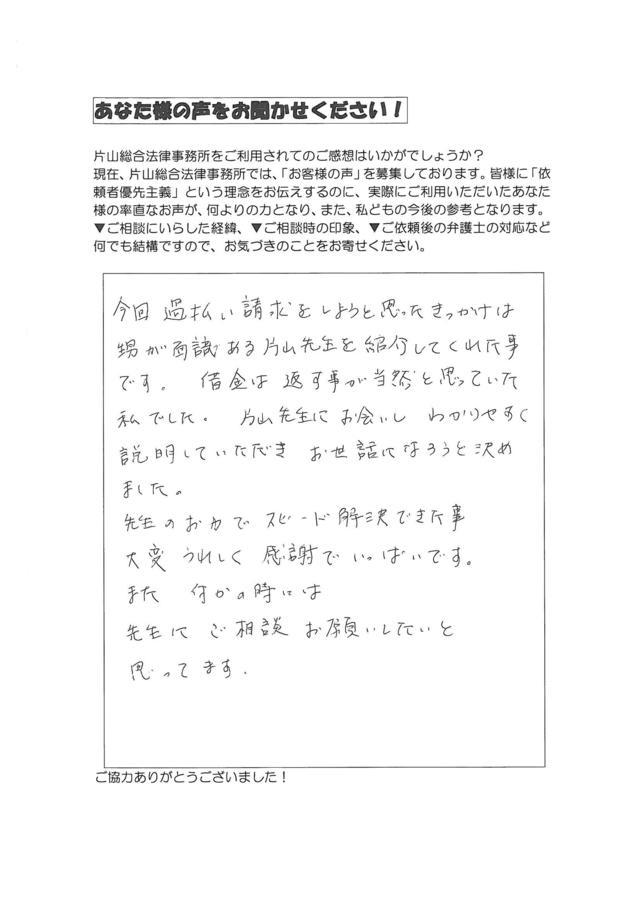 あなた様の声をお聞かせください！
片山総合法律事務所をご利用されてのご感想はいかがでしょうか？
現在、片山総合法律事務所では、「お客様の声」を募集しております。皆様に「依
頼者優先主義」という理念をお伝えするのに、実際にご利用いただいたあなた
様の率直なお声が、何よりの力となり、また、私どもの今後の参考となります。
▼ご相談にいらした経緯、▼ご相談時の印象、▼ご依頼後の弁護士の対応など
何でも結構ですので、お気づきのことをお寄せください。
今回 過払い請求をしようと思ったきっかけは
甥が面識ある片山先生を紹介してくれた事
です。 借金は 返す事が当然と思っていた
私でした。 片山先生にお会いし わかりやすく
説明していただき お世話になろうと決め
ました。
先生のおかで スピード解決できた事
大変 うれしく 感謝で いっぱいです。
また 何かの時には
先生に ご相談 お願いしたいと
思ってます.
ご協力ありがとうございました！